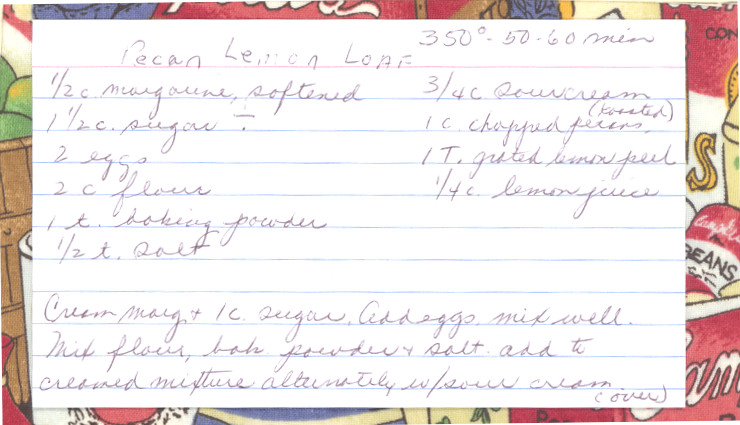 350° - 50-60 min
Pecan Lemon Loaf
1/2 c margarine, softened
1 1/2 c. sugar ÷
2 eggs
2 c flour
1 t. baking powder
1/2 t. salt
3/4 c sour cream
(toasted)
1 c. chopped pecans,
1 T. grated lemon peel
1/4 c. lemon juice
Cream marg + 1 c. sugar. Add eggs, mix well.
Mix flour, bak. powder + salt. add to
creamed mixture alternately w/sour cream.
(over)
CON
S
Campbell's
BEANS